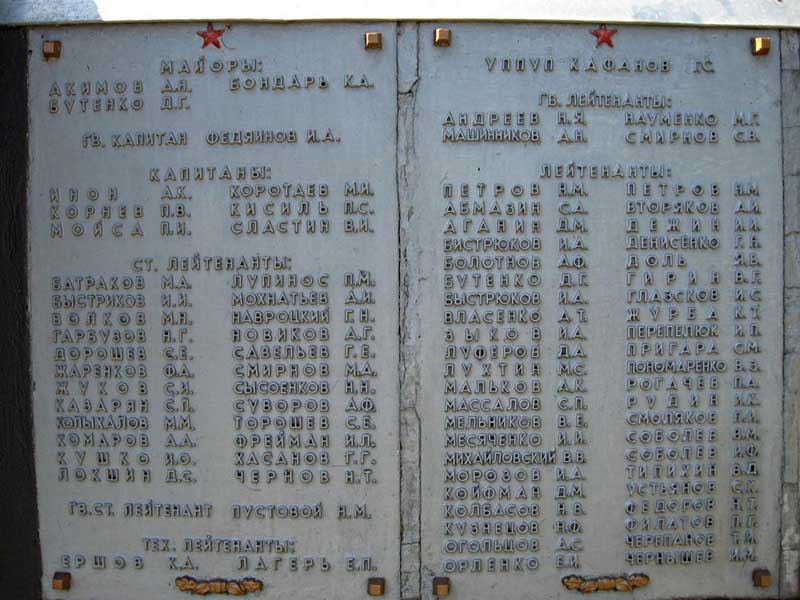 МАЙОРЫ:
АКИМОВ А.Н. БОНДАРЬ К.А.
БУТЕНКО Д.Г.
ГВ. КАПИТАН ФЕДЯИНОВ И.А.
КАПИТАНЫ:
ИНОН А.К. КОРОТАЕВ М.И.
КОРНЕВ П.В. КИСИЛЬ П.С.
МОЙСА П.И. СЛАСТИН В.И.
СТ. ЛЕЙТЕНАНТЫ:
БАТРАКОВ М.А. ЛУПИНОС П.М.
БЫСТРИКОВ И.И. МОХНАТЬЕВ А.И.
ВОЛКОВ М.Н. НАВРОЦКИЙ Г.Н.
ГАРБУЗОВ Н.Г. НОВИКОВ А.Г.
ДОРОШЕВ С.Е. САВЕЛЬЕВ Г.Е.
ЖАРЕНКОВ Ф.А. СМИРНОВ М.А.
ЖУКОВ С.И. СЫСОЕНКОВ Н.Н.
КАЗАРЯН С.П. СУВОРОВ А.Ф.
КОЛЫХАЛОВ М.М. ТОРОШЕВ С.Е.
КОМАРОВ А.А. ФРЕЙМАН И.Л.
КУШКО И.О. ХАСАНОВ Г.Г.
ЛОКШИН Д.С. ЧЕРНОВ Н.Т.
ГВ.СТ. ЛЕЙТЕНАНТ ПУСТОВОЙ Н.М.
ТЕХ. ЛЕЙТЕНАНТЫ:
ЕРШОВ К.А. ЛАГЕРЬ Е.П.
УППУП КАФАНОВ Г.С.
ГВ. ЛЕЙТЕНАНТЫ:
АНДРЕЕВ Н.Я. НАУМЕНКО М.Г.
МАШИННИКОВ А.Н. СМИРНОВ С.В.
ЛЕЙТЕНАНТЫ:
ПЕТРОВ Н.М. ПЕТРОВ Н.М.
АБМАЗИН С.А. ВТОРЯКОВ А.И.
АГАНИН Д.М. ДЕЖИН И.И.
БИСТРЮКОВ И.А. ДЕНИСЕНКО Г.Н.
БОЛОТНОВ А.Ф. ДОЛЬ Я.В.
БУТЕНКО Д.Г. ГИРИН В.Г.
БЫСТРЮКОВ И.А. ГЛАЗСКОВ И.С.
ВЛАСЕНКО А.Т. ЖУРБА К.Т.
ЗЫКОВ И.А. ПЕРЕПЕЛЮК И.П.
ЛУФЕРОВ Д.А. ПРИГАРА С.М.
ЛУХТИН М.С. ПОНОМАРЕНКО В.З.
МАЛЬКОВ А.К. РОГАЧЕВ П.А.
МАССАЛОВ С.П. РУДИН И.К.
МЕЛЬНИКОВ В.Е. СМОЛЯКОВ
МЕСЯЧЕНКО И.И. СОБОЛЕВ В.М.
МИХАЙЛОВСКИЙ В.В. СОБОЛЕВ И.Ф.
МОРОЗОВ И.А. ТИПИХИН В.Д.
КОЙФМАН Д.М. УСТЬЯНОВ С.К.
КОЛБАСОВ Н.В. ФЕДОРОВ Н.Т.
КУЗНЕЦОВ Н.Ф. ФИЛАТОВ П.Г.
ОГОЛЬЦОВ А.С. ЧЕРЕПАНОВ Т.И.
ОРЛЕНКО Е.И. ЧЕРНЫШЕВ И.М.